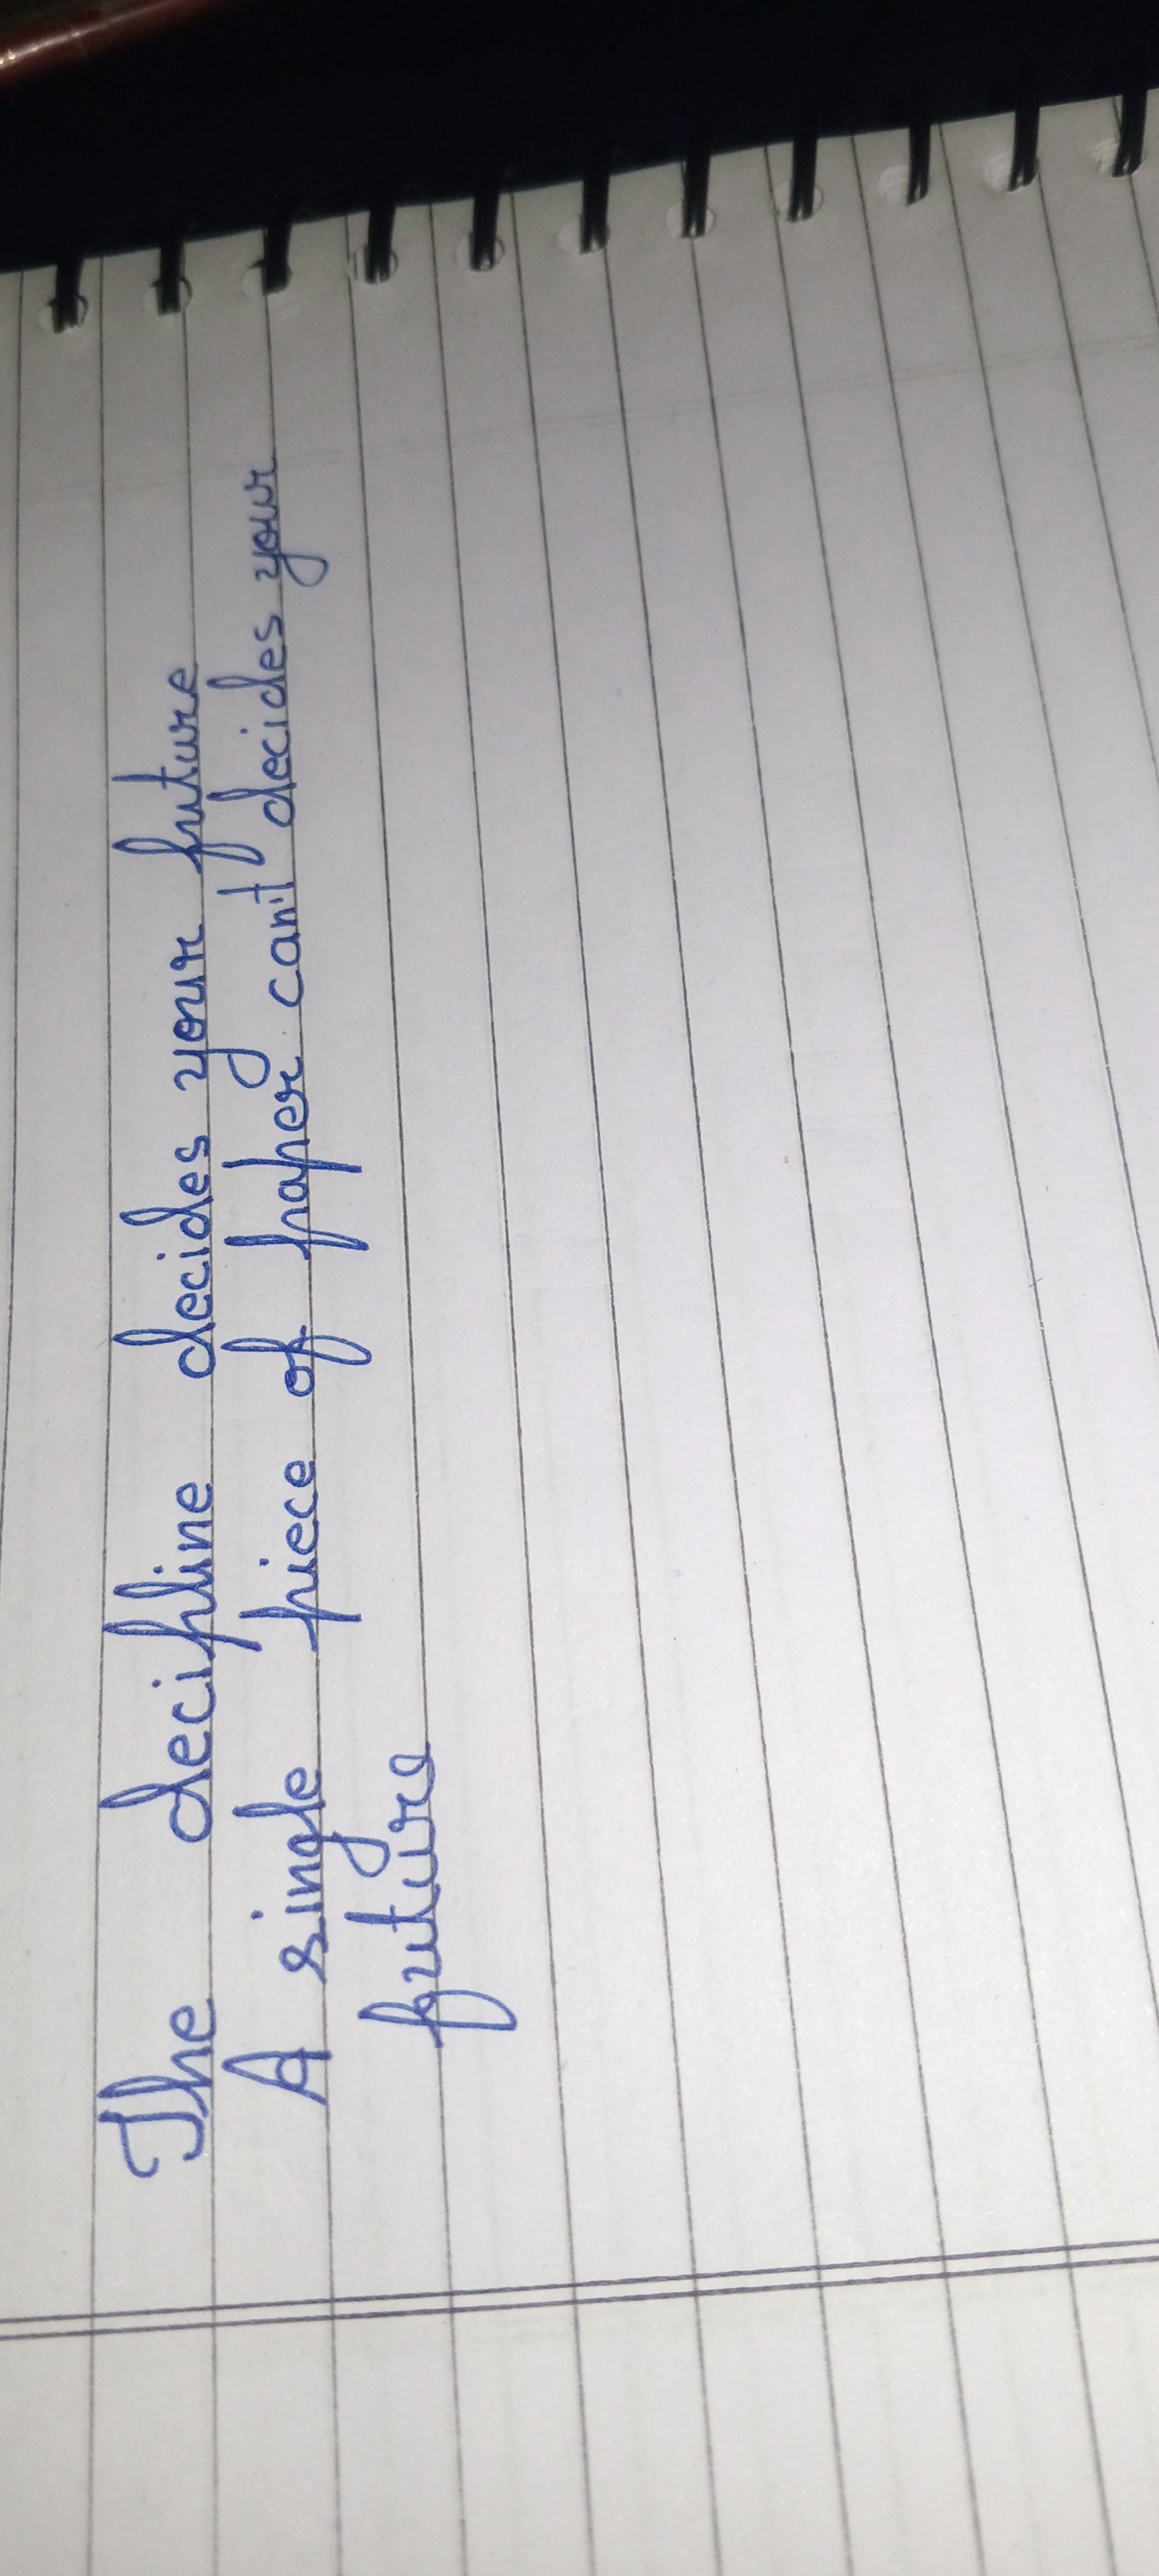 The decipline decides your future
A single piece of paper can't decides your
future